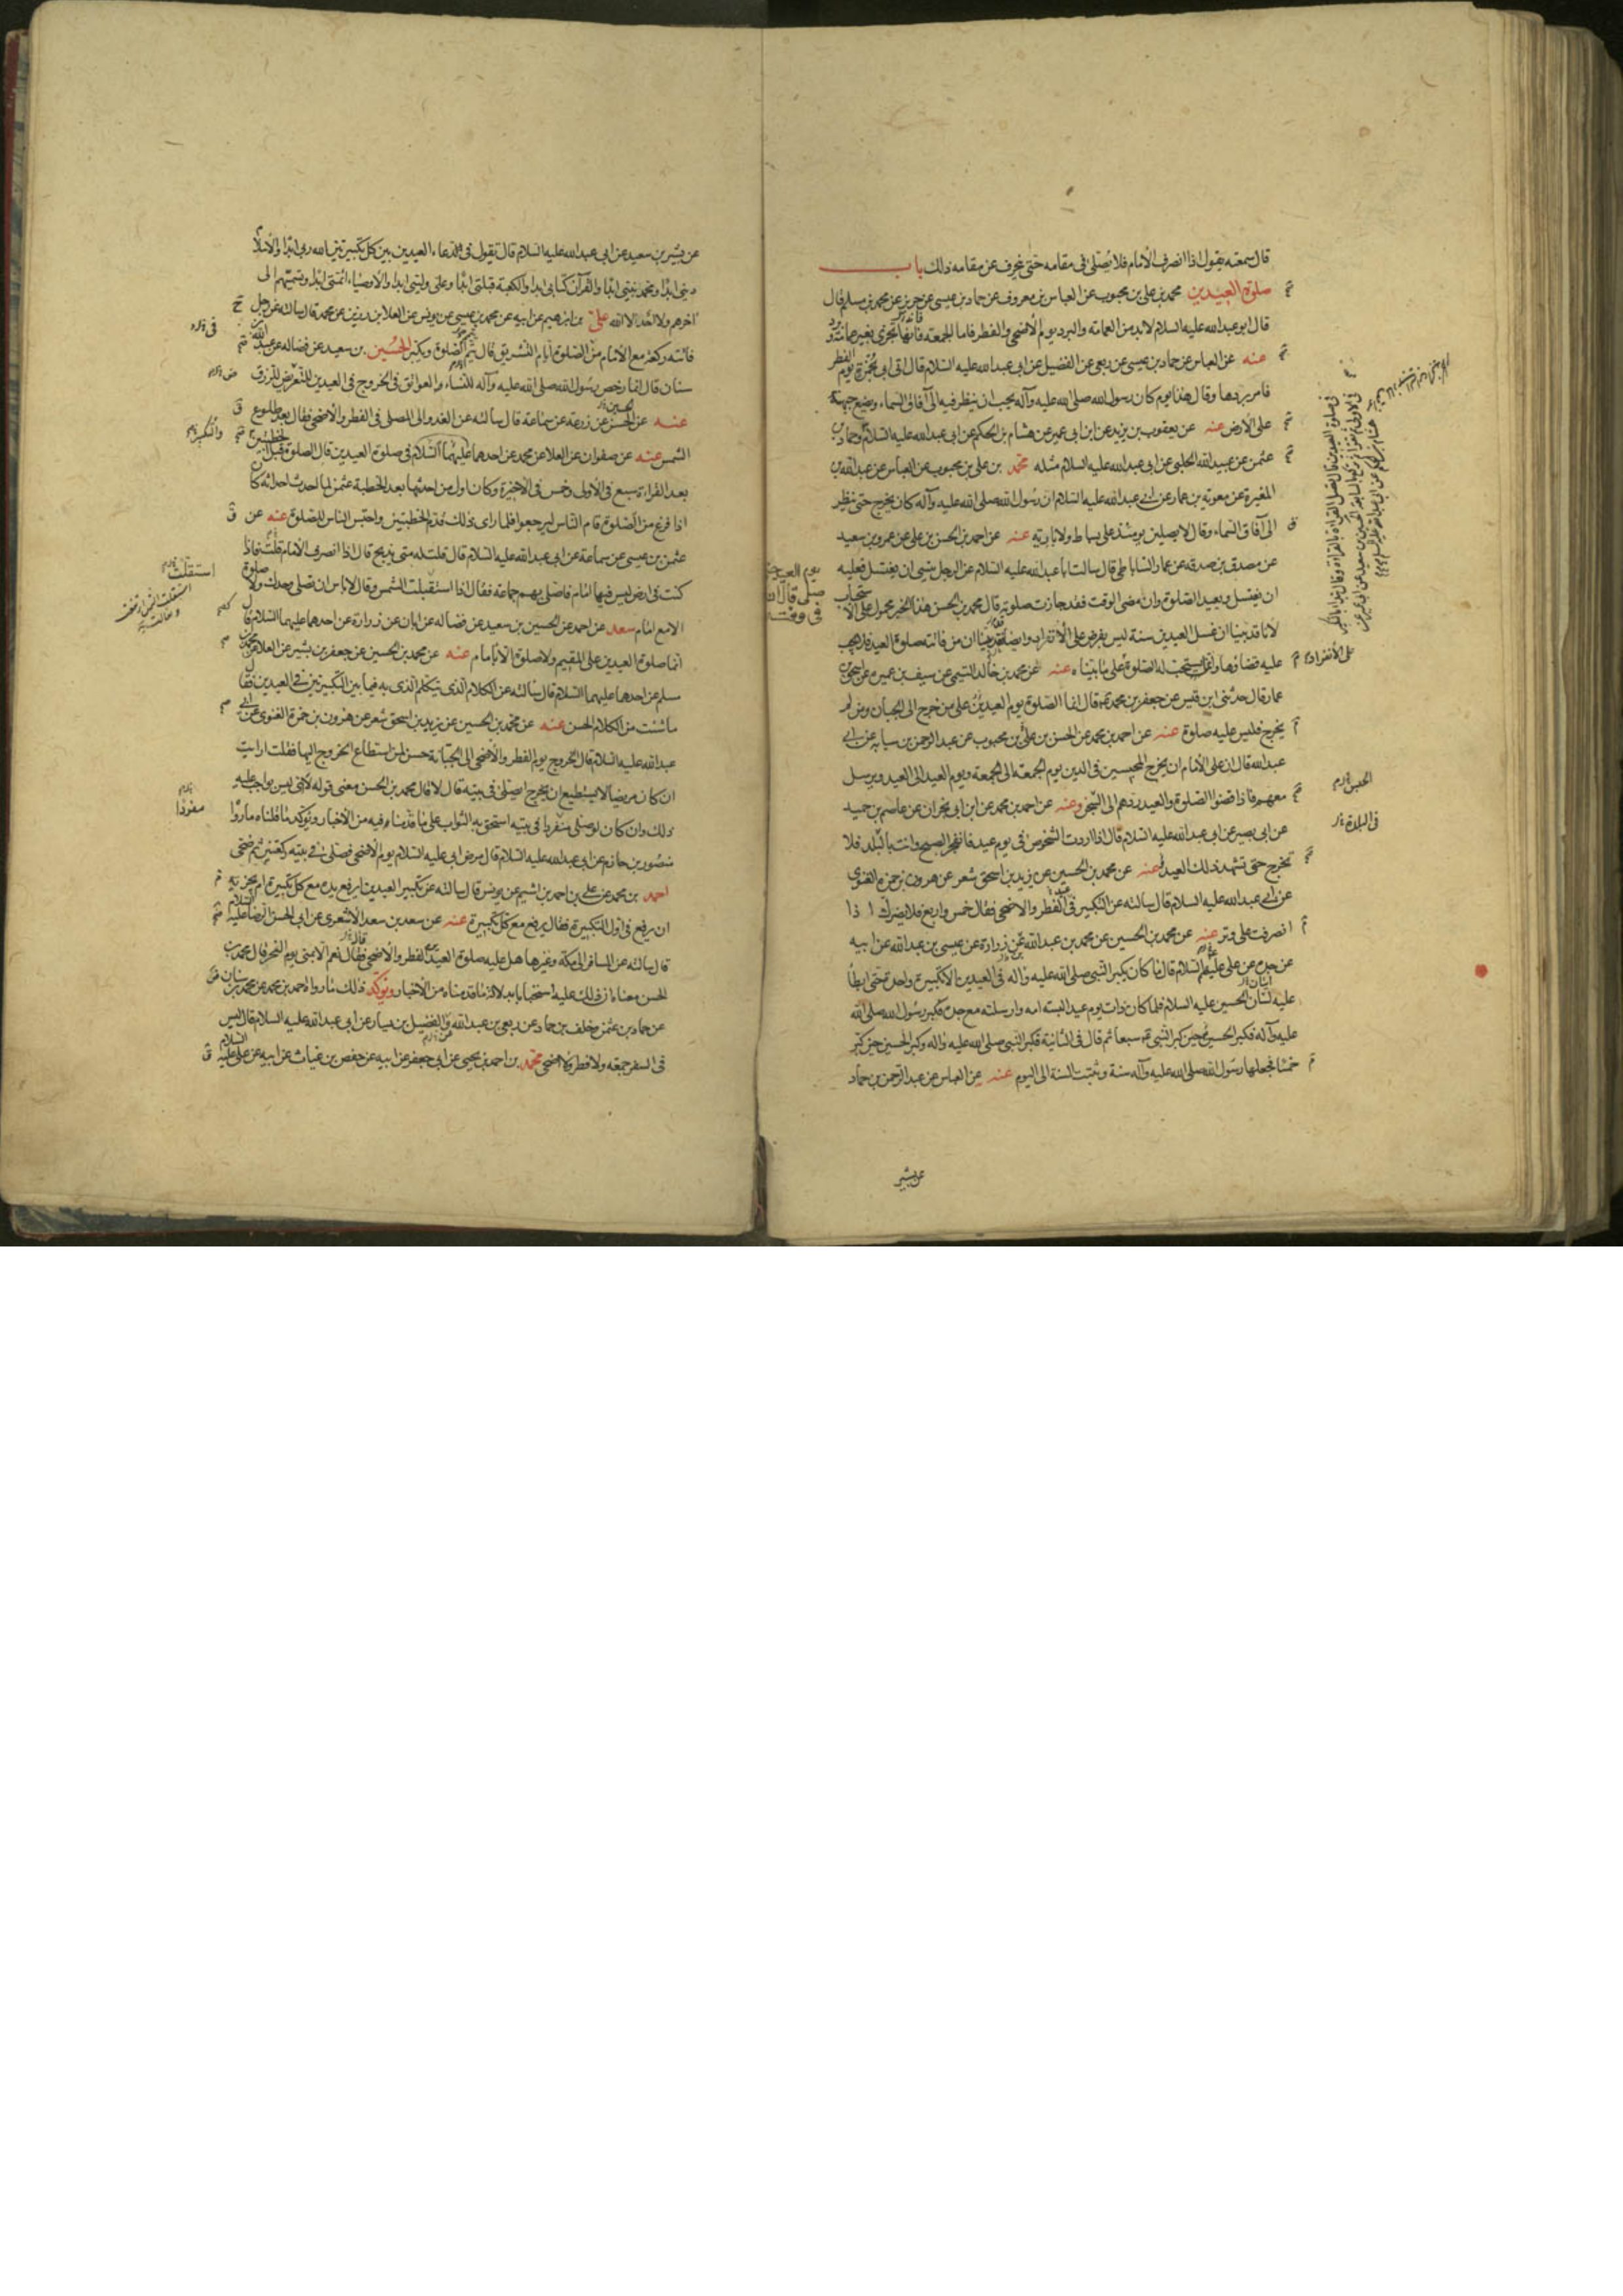 قال سمعته يقول اذا انصرف الامام فلا يصلى فى مقامه حتى ينحرف عن مقامه ذلك باب
صلوة العيدين محمد بن على بن محبوب عن العباس بن معروف عن حماد بن عيسى عن حريز عن محمد بن مسلم قال
قال ابو عبد الله عليه السلام لا بد من العمامة والبرد يوم الاضحى والفطر فاما الجمعة فانها تجزى بغير عمامة وبرد
عنه عن العباس عن حماد بن عيسى عن ربعى عن الفضيل عن ابى عبد الله عليه السلام قال اتى ابى بخمرة يوم الفطر
فامر بردها وقال هذا يوم كان رسول الله صلى الله عليه وآله يحب ان ينظر فيه الى آفاق السماء ويضع جبهته
على الارض عنه عن يعقوب بن يزيد عن ابن ابى عمير عن هشام بن الحكم عن ابى عبد الله عليه السلام وحماد بن
عثمن عن عبيد الله الحلبى عن ابى عبد الله عليه السلام مثله محمد بن على بن محبوب عن العباس عن عبد الله بن
المغيرة عن معوية بن عمار عن ابى عبد الله عليه السلام ان رسول الله صلى الله عليه وآله كان يخرج حتى ينظر
الى آفاق السماء وقال لا يصلين يومئذ على بساط ولا بارية عنه عن احمد بن الحسن بن على عن عمرو بن سعيد
عن مصدق بن صدقه عن عمار الساباطى قال سالت ابا عبد الله عليه السلام عن الرجل ينسى ان يغتسل يوم العيد حتى صلى قال ان كان فى وقت فعليه
ان يغتسل ويعيد الصلوة وان مضى الوقت فقد جازت صلوته قال محمد بن الحسن هذا الخبر محمول على الاستحباب
لانا قد بينا ان غسل العيدين سنة ليس بفرض على الانفراد وايضا فقد بينا ان من فاتته صلوة العيد فلا يجب
عليه قضاؤها وانما يستحب له الصلوة على ما بيناه عنه عن محمد بن خالد التميمى عن سيف بن عميرة عن اسحق بن
عمار قال حدثنى ابن قيس عن جعفر بن محمد قال انما الصلوة يوم العيدين على من خرج الى الجبان ومن لم
يخرج فليس عليه صلوة عنه عن احمد بن محمد عن الحسن بن على بن محبوب عن عبد الرحمن بن سيابه عن ابى
عبد الله قال ان على الامام ان يخرج المحبسين فى الدين يوم الجمعة الى الجمعة ويوم العيد الى العيد ويرسل
معهم فاذا قضوا الصلوة والعيد ردهم الى السجن وعنه عن احمد بن محمد عن ابن ابى نجران عن عاصم بن حميد
عن ابى بصير عن ابى عبد الله عليه السلام قال اذا اردت الشخوص فى يوم عيد فانفجر الصبح وانت بالبلد فلا
تخرج حتى تشهد ذلك العيد عنه عن محمد بن الحسين عن يزيد بن اسحق شعر عن هرون بن حمزه الغنوى
عن ابى عبد الله عليه السلام قال سالته عن التكبير فى الفطر والاضحى فقال خمس واربع فلا يضرك اذا
انصرفت على وتر عنه عن محمد بن الحسين عن محمد بن عبد الله عن زرارة عن عيسى بن عبد الله عن ابيه
عن جده عن على عليه السلام قال ما كان يكبر النبى صلى الله عليه وآله فى العيدين الا تكبيرة واحدة حتى ابطأ
عليه لسان الحسين عليه السلام فلما كان ذات يوم عيد البسته امه وارسلته مع جده فكبر رسول الله صلى الله
عليه وآله فكبر الحسين حين كبر النبى سبعا ثم قال فى الثانية فكبر النبى صلى الله عليه وآله وكبر الحسين حين كبر
خمسا فجعلها رسول الله صلى الله عليه وآله سنة وثبتت السنة الى اليوم عنه عن العباس عن عبد الرحمن بن حماد
عن بشير
عن بشير بن سعيد عن ابى عبد الله عليه السلام قال تقول فى دعاء العيدين بين كل تكبيرتين الله ربى ابدا والاسلام
دينى ابدا ومحمد نبيى ابدا والقرآن كتابى ابدا والكعبة قبلتى ابدا وعلى وليى ابدا والاوصياء ائمتى ابدا وتسميهم الى
آخرهم ولا احد الا الله على بن ابرهيم عن ابيه عن محمد بن عيسى عن يونس عن العلا بن رزين عن محمد قال سالته عن رجل
فاتته ركعة مع الامام من الصلوة ايام التشريق قال يتم الصلوة ويكبر الحسين بن سعيد عن فضاله عن عبد الله
سنان قال انما رخص رسول الله صلى الله عليه وآله للنساء والعواتق فى الخروج فى العيدين للتعرض للرزق
عنه عن الحسن عن زرعة عن سماعة قال سالته عن الغدو الى المصلى فى الفطر والاضحى فقال بعد طلوع
الشمس عنه عن صفوان عن العلا عن محمد عن احدهما عليهما السلام فى صلوة العيدين قال الصلوة قبل الخطبتين
بعد القراءة سبع فى الاولى وخمس فى الاخيرة وكان اول من احدثها بعد الخطبة عثمن لما احدث احداثه كان
اذا فرغ من الصلوة قام الناس ليرجعوا فلما راى ذلك قدم الخطبتين واحتبس الناس للصلوة عنه عن
عثمن بن عيسى عن سماعة عن ابى عبد الله عليه السلام قال قلت له متى يذبح قال اذا انصرف الامام قلت فاذا
كنت فى ارض ليس فيها امام فاصلى بهم جماعة فقال اذا استقبلت الشمس وقال لا باس ان تصلى وحدك ولا صلوة
الا مع امام سعد عن احمد عن الحسين بن سعيد عن فضاله عن ابان عن زرارة عن احدهما عليهما السلام قال
انما صلوة العيدين على المقيم ولا صلوة الا بامام عنه عن محمد بن الحسين عن جعفر بن بشير عن العلا عن محمد بن
مسلم عن احدهما عليهما السلام قال سالته عن الكلام الذى يتكلم الذى به فيما بين التكبيرتين فى العيدين فقال
ما شئت من الكلام الحسن عنه عن محمد بن الحسين عن يزيد بن اسحق شعر عن هرون بن حمزة الغنوى عن ابى
عبد الله عليه السلام قال الخروج يوم الفطر والاضحى الى الجبانة حسن لمن استطاع الخروج اليها فقلت ارايت
ان كان مريضا لا يستطيع ان يخرج ايصلى فى بيته قال لا قال محمد بن الحسن معنى قوله لا اى ليس بواجب عليه
ذلك وان كان لو صلى منفردا فى بيته استحق به الثواب على ما قدمناه فيه من الاخبار ويؤكد ما قلناه ما رواه
منصور بن حازم عن ابى عبد الله عليه السلام قال مرض ابى عليه السلام يوم الاضحى فصلى فى بيته ركعتين ثم ضحى
احمد بن محمد عن على بن احمد بن اشيم عن يونس قال سالته عن تكبير العيدين ايرفع يده مع كل تكبيرة ام يجزيه
ان يرفع فى اول التكبيرة فقال يرفع مع كل تكبيرة عنه عن سعد بن سعد الاشعرى عن ابى الحسن الرضا عليه السلام
قال سالته عن المسافر الى مكة وغيرها هل عليه صلوة العيد الفطر والاضحى فقال نعم الا بمنى يوم النحر قال محمد بن
الحسن معناه ان ذلك عليه استحبابا بدلالة ما قدمناه من الاخبار ويؤكد ذلك ما رواه احمد بن محمد عن محمد بن سنان
عن حماد بن عثمن وخلف بن حماد عن ربعى بن عبد الله والفضيل بن يسار عن ابى عبد الله عليه السلام قال ليس
فى السفر جمعه ولا فطر ولا اضحى محمد بن احمد بن يحيى عن ابى جعفر عن ابيه عن حفص بن غياث عن ابيه عن على عليه السلام